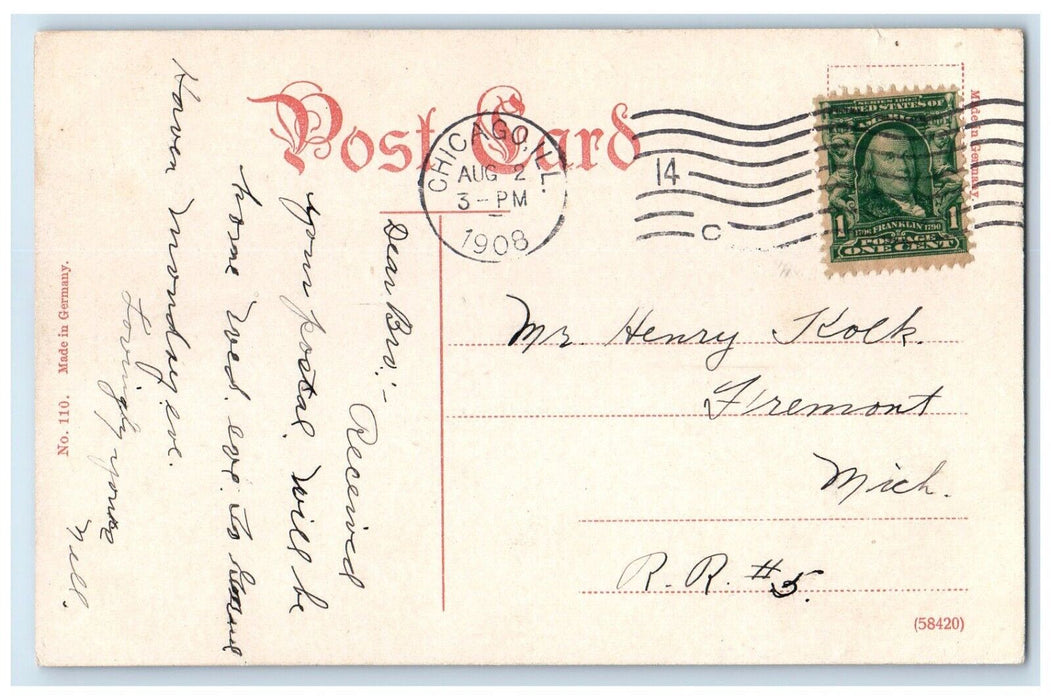 Post Card
CHICAGO, ILL.
AUG 2
3-PM
1908
14
C
SERIES 1902
UNITED STATES OF
AMERICA
1 1706 FRANKLIN 1790 1
POSTAGE
ONE CENT
Made in Germany.
Dear Bro.:-
Received
your postal. Will be
home Wed. eve. To Grand
Haven Monday eve.
Lovingly yours
Nell.
Mr. Henry Kolk.
Fremont
Mich.
R. R. #5.
No. 110. Made in Germany.
(58420)